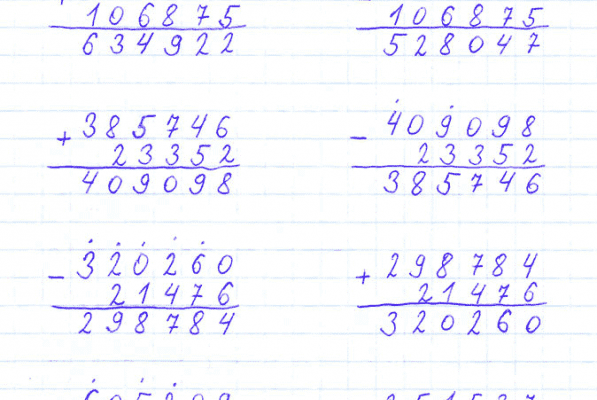 106875
634922
106875
528047
+385746
23352
409098
-409098
23352
385746
-320260
21476
298784
+298784
21476
320260